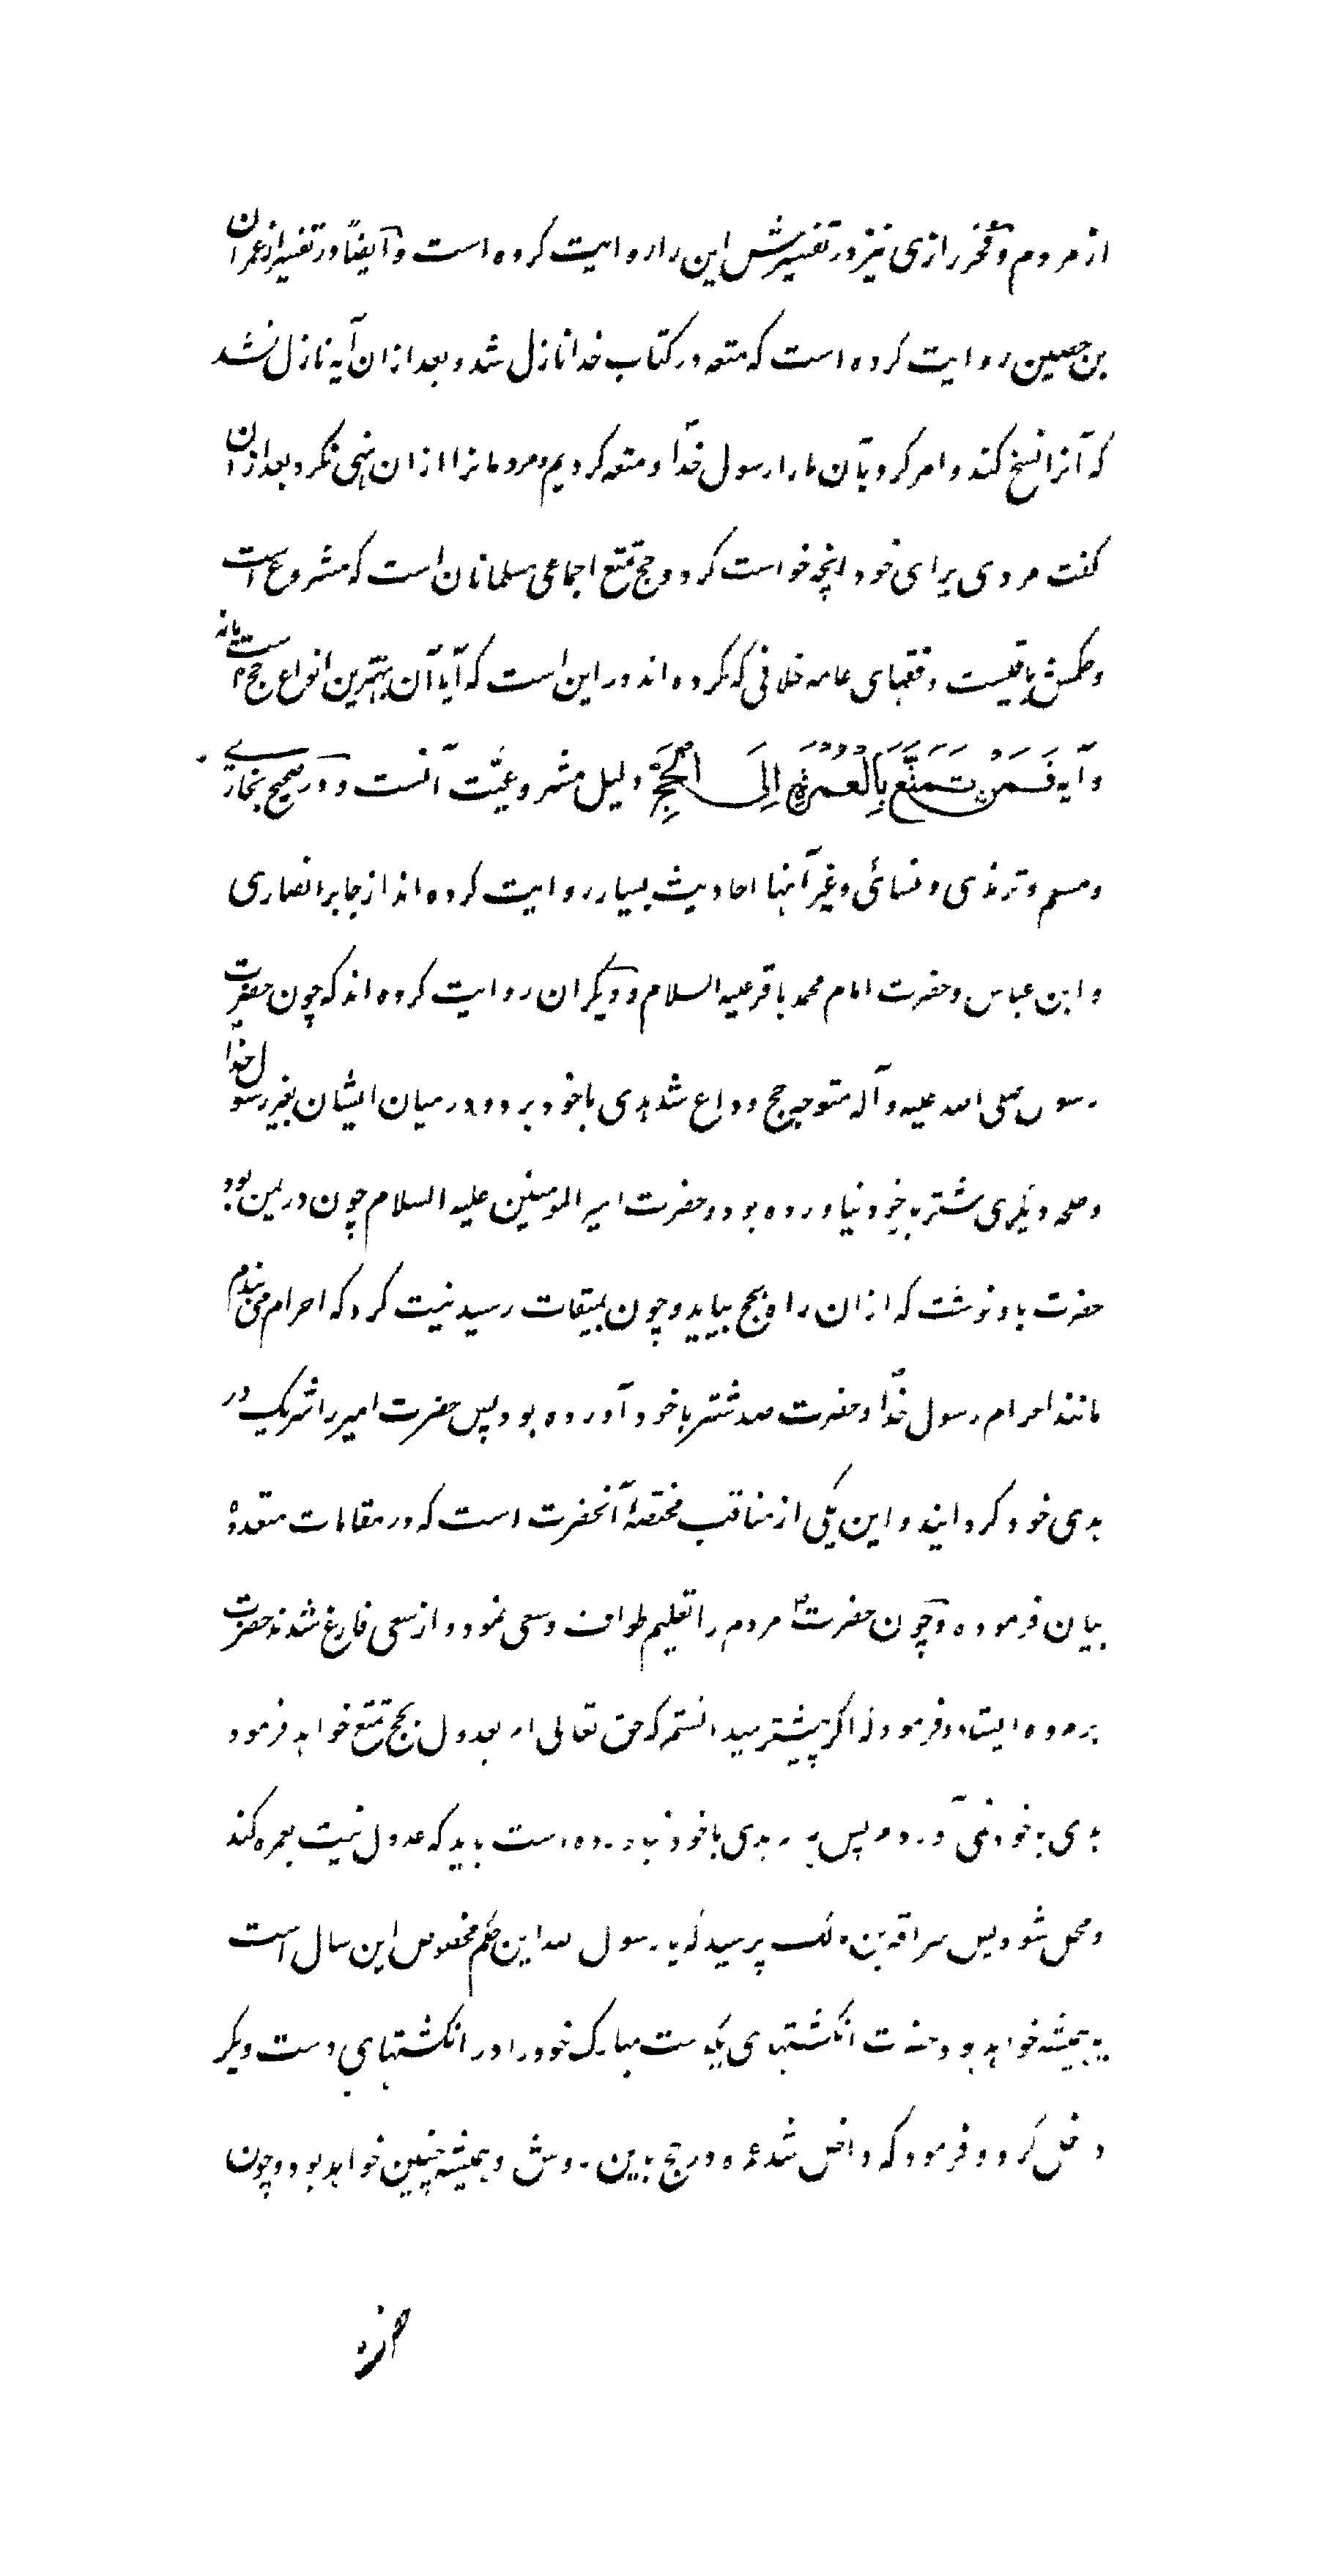 از مردم و فخر رازی نیز در تفسیرش این را روایت کرده است و ایضاً در تفسیر از عمران
بن حصین روایت کرده است که متعه در کتاب خدا نازل شد و بعد ازان آیه نازل نشد
که آنرا نسخ کند و امر کرد بآن ما را رسول خدا و متعه کردیم و مردمانرا ازان نهی نکرد بعد ازان
گفت مردی برای خود انچه خواست کرد و حج تمتع اجماعی مسلمانان است که مشروع است
و حکمش باقیست و فقهای عامه خلافی که کرده اند در این است که آیا آن بهترین انواع حج است یا نه
و آیه فَمَنْ تَمَتَّعَ بِالْعُمْرَةِ اِلَى الْحَجِّ دلیل مشروعیّت آنست و در صحیح بخاری
و مسلم و ترمذی و نسائی و غیر آنها احادیث بسیار روایت کرده اند از جابر انصاری
و ابن عباس و حضرت امام محمد باقر علیه السلام و دیگران روایت کرده اند که چون حضرت
رسول صلی الله علیه و آله متوجه حج وداع شد هدی با خود برد و در میان ایشان بغیر رسول خدا
و طلحه دیگری شتر با خود نیاورده بود و حضرت امیر المومنین علیه السلام چون در یمن بود
حضرت باو نوشت که ازان راه بحج بیاید و چون بمیقات رسید نیت کرد که احرام می بندم
مانند احرام رسول خدا و حضرت صد شتر با خود آورده بود پس حضرت امیر را شریک در
هدی خود گردانید و این یکی از مناقب مختصهٔ آنحضرت است که در مقامات متعدده
بیان فرموده و چون حضرت مردم را تعلیم طواف و سعی نمود و از سعی فارغ شدند حضرت
بر مروه ایستاد و فرمود که اگر پیشتر میدانستم که حق تعالی امر بعدول بحج تمتع خواهد فرمود
هدی با خود نمی آوردم پس هر که هدی با خود نیاورده است باید که عدول نیت بعمره کند
و محل شود پس سراقه بن مالک پرسید که یا رسول الله این حکم مخصوص این سال است
یا همیشه خواهد بود حضرت انگشتهای یکدست مبارک خود را در انگشتهای دست دیگر
داخل کرد و فرمود که داخل شد عمره در حج باین روش و همیشه چنین خواهد بود و چون